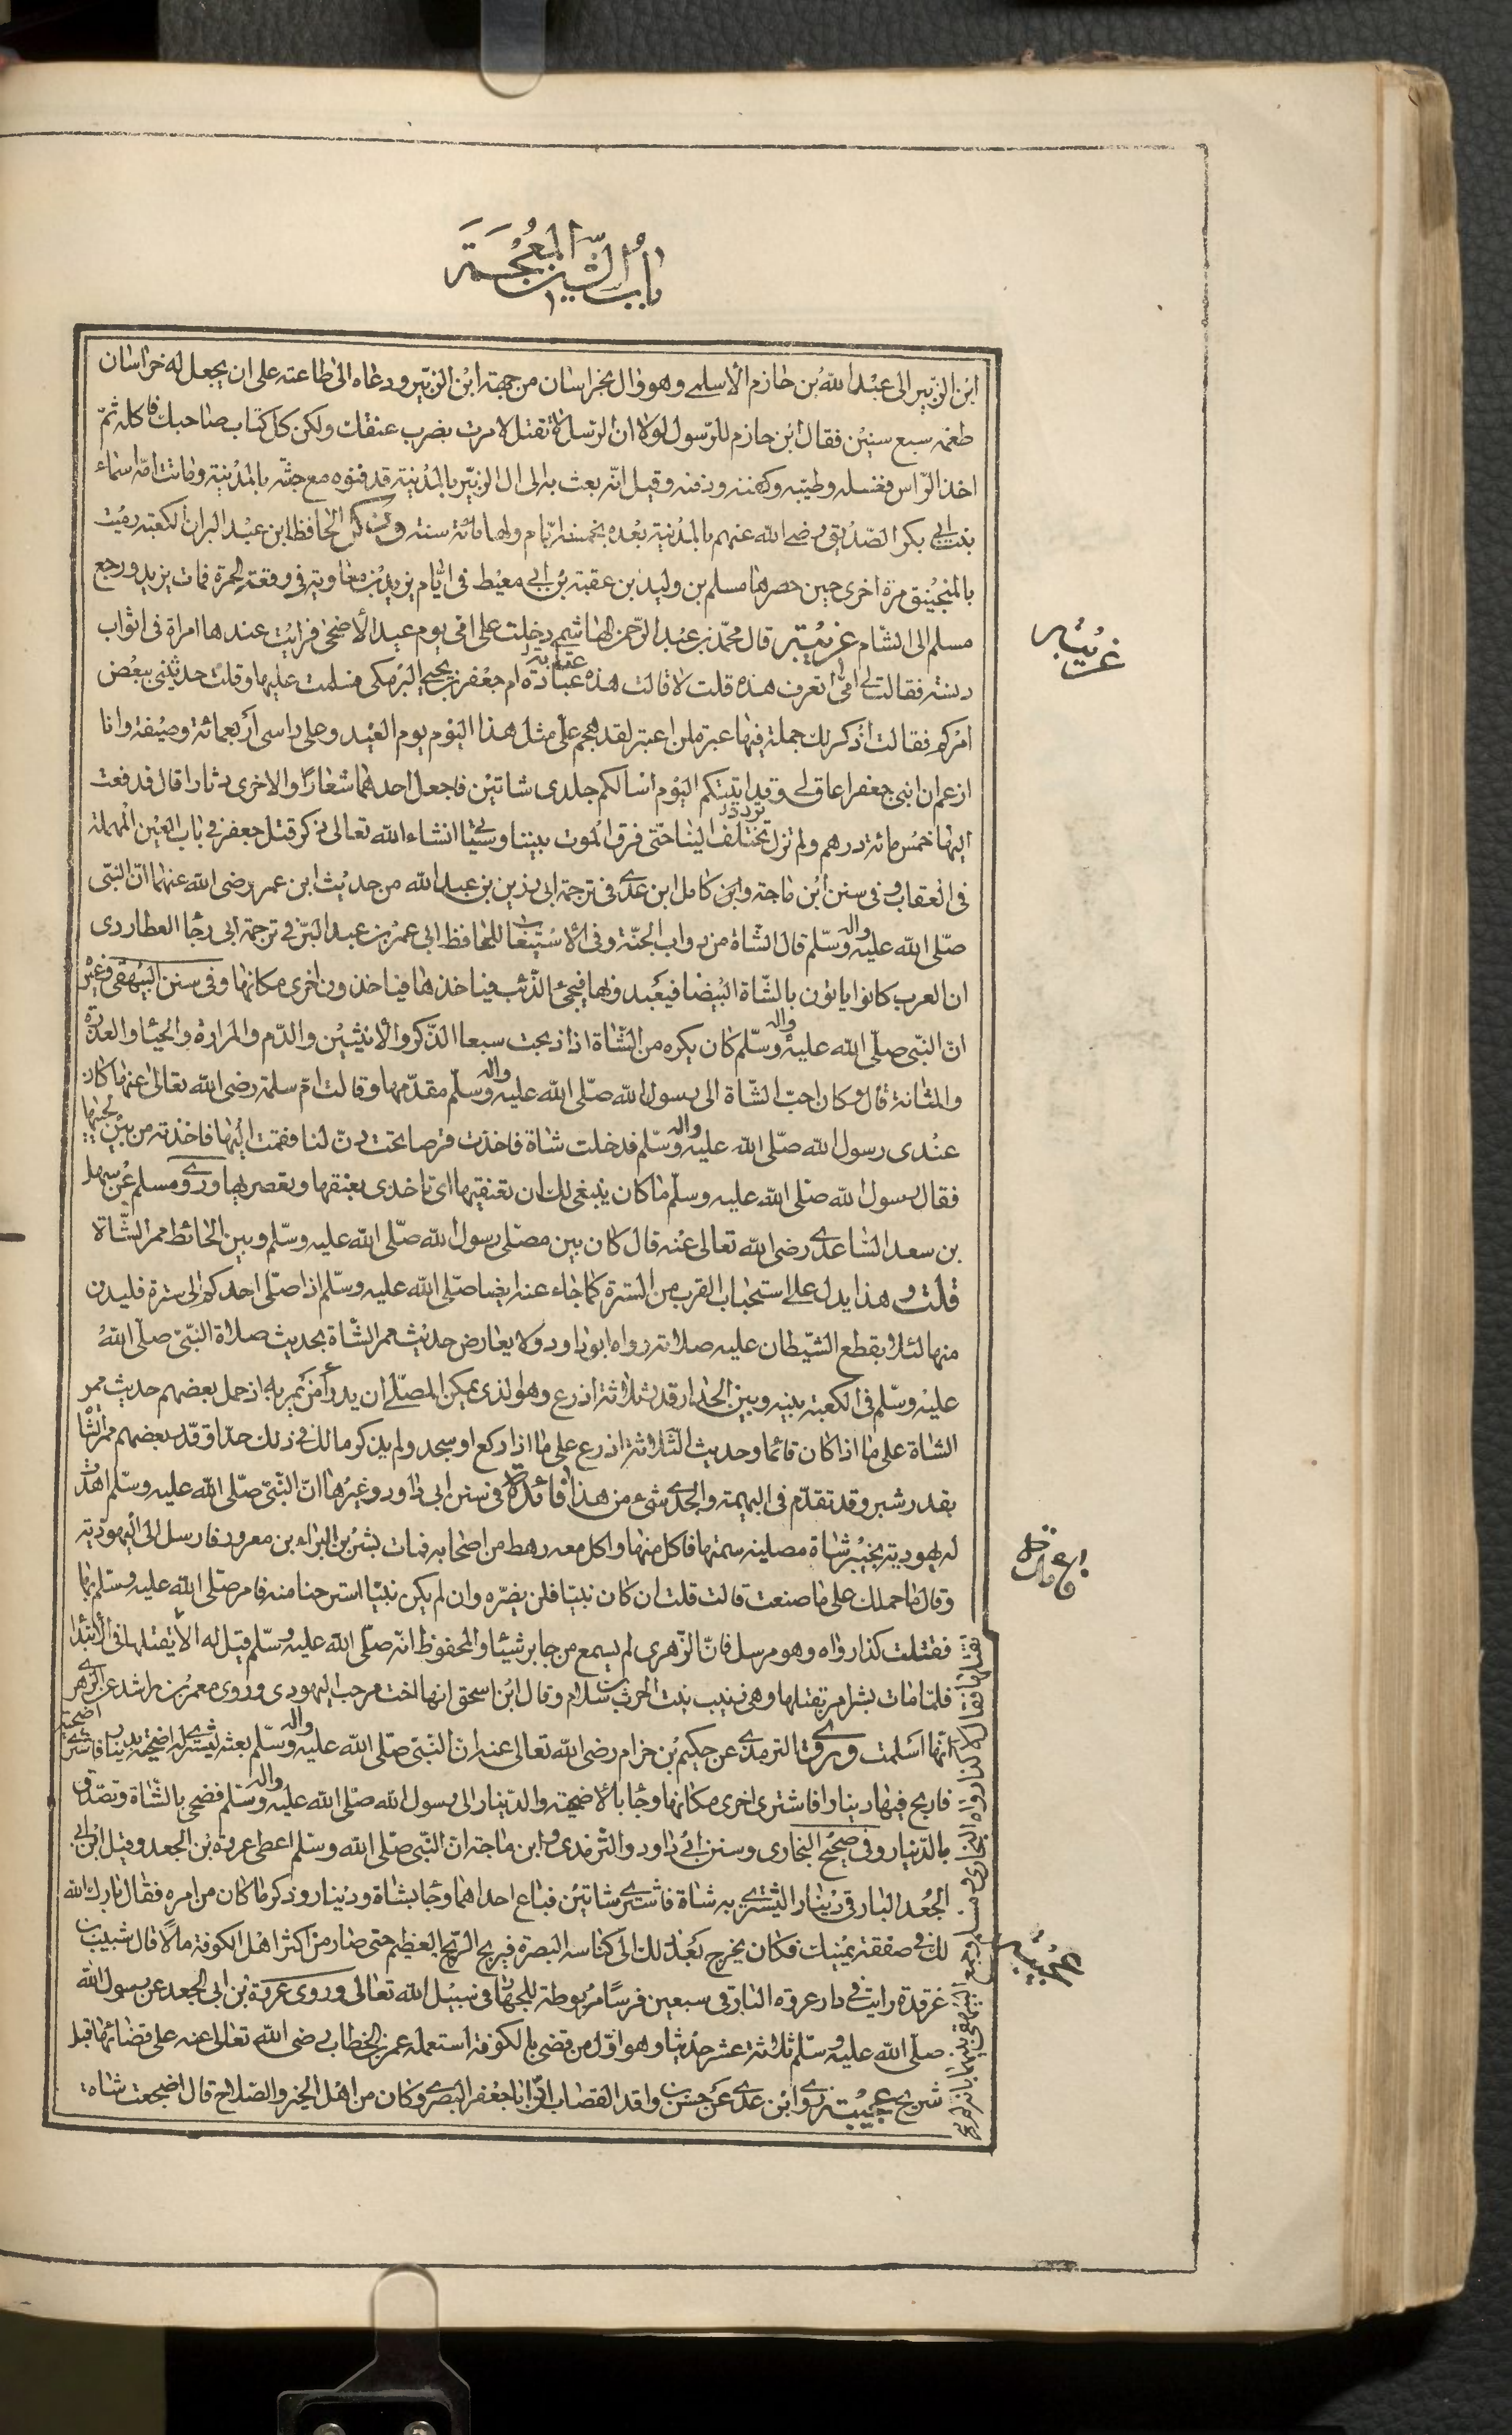 باب الشين المعجمة
ابن الزبير الى عبد الله بن خازم الاسلمي وهو وال بخراسان من جهة ابن الزبير ودعاه الى طاعته على ان يجعل له خراسان
طعمه سبع سنين فقال ابن حازم للرسول لولا ان الرسل لا تقتل لامرت بضرب عنقك ولكن كل كتاب صاحبك فاكله ثم
اخذ الراس فغسله وطيبه وكفنه ودفنه وقيل انه بعث به الى ال الزبير بالمدينة فدفنوه مع جثته بالمدينة وماتت امه اسماء
بنت ابي بكر الصديق رضي الله عنهم بالمدينة بعده بخمسة ايام ولها مائة سنة وذكر الحافظ ابن عبد البر ان الكعبة رميت
بالمنجنيق مرة اخرى حين حصرها مسلم بن وليد بن عقبة بن ابي معيط في ايام يزيد بن معاوية في وقعة الحرة فمات يزيد ورجع
مسلم الى الشام غريبة قال محمد بن عبد الرحمن الهاشمي دخلت على امي يوم عيد الاضحى فرايت عندها امراة في اثواب
دنسة فقالت لي امي اتعرف هذه قلت لا قالت هذه عبادة ام جعفر بن يحيى البرمكي فسلمت عليها وقلت حدثيني ببعض
امركم فقالت اذكر لك جملة فيها عبرة لمن اعتبر لقد هجم علي مثل هذا اليوم يوم العيد وعلى راسى اربعمائة وصيفة وانا
ازعم ان ابني جعفرا عاق لي وقد اتيتكم اليوم اسالكم جلدى شاتين فاجعل احدهما شعارا والاخرى دثارا قال فدفعت
اليها خمس مائة درهم ولم تزل تختلف الينا حتى فرق الموت بيننا وسياتي انشاء الله تعالى ذكر قتل جعفر في باب العين المهملة
في العقاب وفى سنن ابن ماجة وابن كامل ابن عدي في ترجمة ابى رزين بن عبد الله من حديث ابن عمر رضى الله عنهما ان النبى
صلى الله عليه واله وسلم قال الشاة من دواب الجنة وفى الاستيعاب للحافظ ابى عمر بن عبد البر في ترجمة ابى رجا العطاردى
ان العرب كانوا ياتون بالشاة البيضا فيعبدونها فيجئ الذئب فياخذها فياخذون اخرى مكانها وفى سنن البيهقى وغيره
ان النبى صلى الله عليه واله وسلم كان يكره من الشاة اذا ذبحت سبعا الذكر والانثيين والدم والمرارة والحيا والغدة
والمثانة قال وكان احب الشاة الى رسول الله صلى الله عليه واله وسلم مقدمها وقالت ام سلمة رضى الله تعالى عنها كان
عندى رسول الله صلى الله عليه واله وسلم فدخلت شاة فاخذت قرصا تحت دن لنا فقمت اليها فاخذته من بين لحييها
فقال رسول الله صلى الله عليه وسلم ما كان ينبغى لك ان تعنقيها اى تاخذى بعنقها وتعصريها وروي ومسلم عن سهل
بن سعد الساعدي رضى الله تعالى عنه قال كان بين مصلى رسول الله صلى الله عليه وسلم وبين الحائط ممر الشاة
قلت و هذا يدل على استحباب القرب من السترة كما جاء عنه ايضا صلى الله عليه وسلم اذا صلى احدكم الى سترة فليدن
منها لئلا يقطع الشيطان عليه صلاته رواه ابو داود ولا يعارض حديث ممر الشاة بحديث صلاة النبى صلى الله
عليه وسلم فى الكعبة بينه وبين الجدار قدر ثلاثة اذرع وهو الذى يمكن المصلى ان يدرأ من يمر به اذ حمل بعضهم حديث ممر
الشاة على ما اذا كان قائما وحديث الثلاثة اذرع على ما اذا ركع او سجد ولم يذكر مالك فى ذلك حدا وقدر بعضهم ممر الشاة
بقدر شبر وقد تقدم فى البهيمة والجدي شئ من هذا فائدة فى سنن ابى داود وغيرها ان النبى صلى الله عليه وسلم اهدت
له يهودية بخيبر شاة مصلية سمتها فاكل منها واكل معه رهط من اصحابه فمات بشر بن البراء بن معرور فارسل الى اليهودية
وقال ما حملك على ما صنعت قالت قلت ان كان نبيا فلن يضره وان لم يكن نبيا استرحنا منه فامر صلى الله عليه وسلم بها
فقتلت كذا رواه وهو مرسل فان الزهرى لم يسمع من جابر شيئا والمحفوظ انه صلى الله عليه وسلم قيل له الا تقتلها فى الابتدا
فلما مات بشر امر بقتلها وهى زينب بنت الحرث بن سلام وقال ابن اسحق انها اخت مرحب اليهودى وروى معمر بن راشد عن الزهري
انها اسلمت وروي الترمذي عن حكيم بن حزام رضى الله تعالى عنه ان النبى صلى الله عليه واله وسلم بعثه ليشتري له اضحية بدينار فاشتري اضحية
فاربح فيها دينارا فاشترى اخرى مكانها وجا بالاضحية والدينار الى رسول الله صلى الله عليه واله وسلم فضحى بالشاة وتصدق
بالدينار وفى صحيح البخارى وسنن ابى داود والترمذى وابن ماجة ان النبى صلى الله وسلم اعطى عروة بن الجعد وقيل ابن ابى
الجعد البارقى دينارا ليشتري به شاة فاشترى شاتين فباع احداهما وجا بشاة ودينار وذكر ما كان من امره فقال بارك الله
لك فى صفقة يمينك فكان يخرج بعد ذلك الى كناسه البصرة فيربح الربح العظيم حتى صار من اكثر اهل الكوفة مالا قال شبيب بن
غرقدة رايت فى دار عروة البارقى سبعين فرسا مربوطة للجهاد فى سبيل الله تعالى وروى عروة بن ابى الجعد عن رسول الله
صلى الله عليه وسلم ثلاثة عشر حديثا وهو اول من قضى بالكوفة استعمله عمر بن الخطاب رضى الله تعالى عنه على قضائها قبل
شريح عجيبة روي ابن عدي عن حسن بن واقد القصاب ان ابا جعفر البصرى وكان من اهل الخير والصلاح قال اضجعت شاة
تقتلها فقال لا كذا رواه البخارى ومسلم وجمع البيهقى بينهما بانه
غريبة
عجيبة